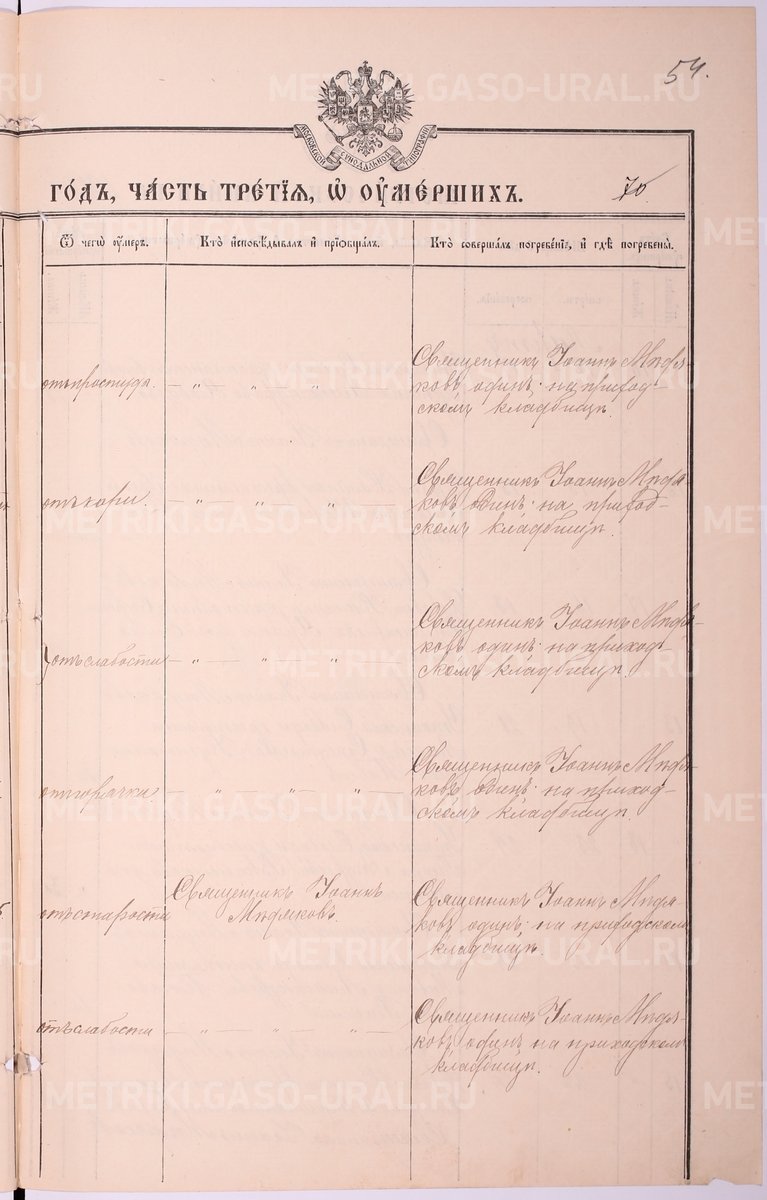 54.
МОСКОВСКОЙ СѴНОДАЛЬНОЙ ТИПОГРАФІИ
ГОДЪ, ЧАСТЬ ТРЕТІЯ, Ѡ ОУМЕРШИХЪ.
70
Ѿ чегѡ оумеръ.
Кто исповѣдывалъ и приобщалъ.
Кто совершалъ погребеніе, и гдѣ погребены.
отъ простуды. — „ — „ „
Священникъ Іоаннъ Мидя-
ковъ одинъ: на приход-
скомъ кладбищѣ.
отъ кори. — „ — „ „ —
Священникъ Іоаннъ Мидя-
ковъ одинъ: на приход-
скомъ кладбищѣ.
отъ слабости — „ — „ „ —
Священникъ Іоаннъ Мидя-
ковъ одинъ: на приход-
скомъ кладбищѣ.
отъ горячки. — „ — „ — „ —
Священникъ Іоаннъ Мидя-
ковъ одинъ: на приход-
скомъ кладбищѣ.
отъ старости
Священникъ Іоаннъ
Мидяковъ.
Священникъ Іоаннъ Мидя-
ковъ одинъ: на приходскомъ
кладбищѣ.
отъ слабости — „ — „ — „ —
Священникъ Іоаннъ Мидя-
ковъ одинъ на приходскомъ
кладбищѣ.
METRIKI.GASO-URAL.RU